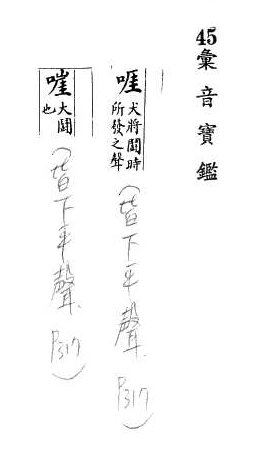 45彙音寶鑑
啀 犬將鬪時
所發之聲
(皆下平聲. P317)
嘊 犬鬪
也
(皆下平聲. P317)